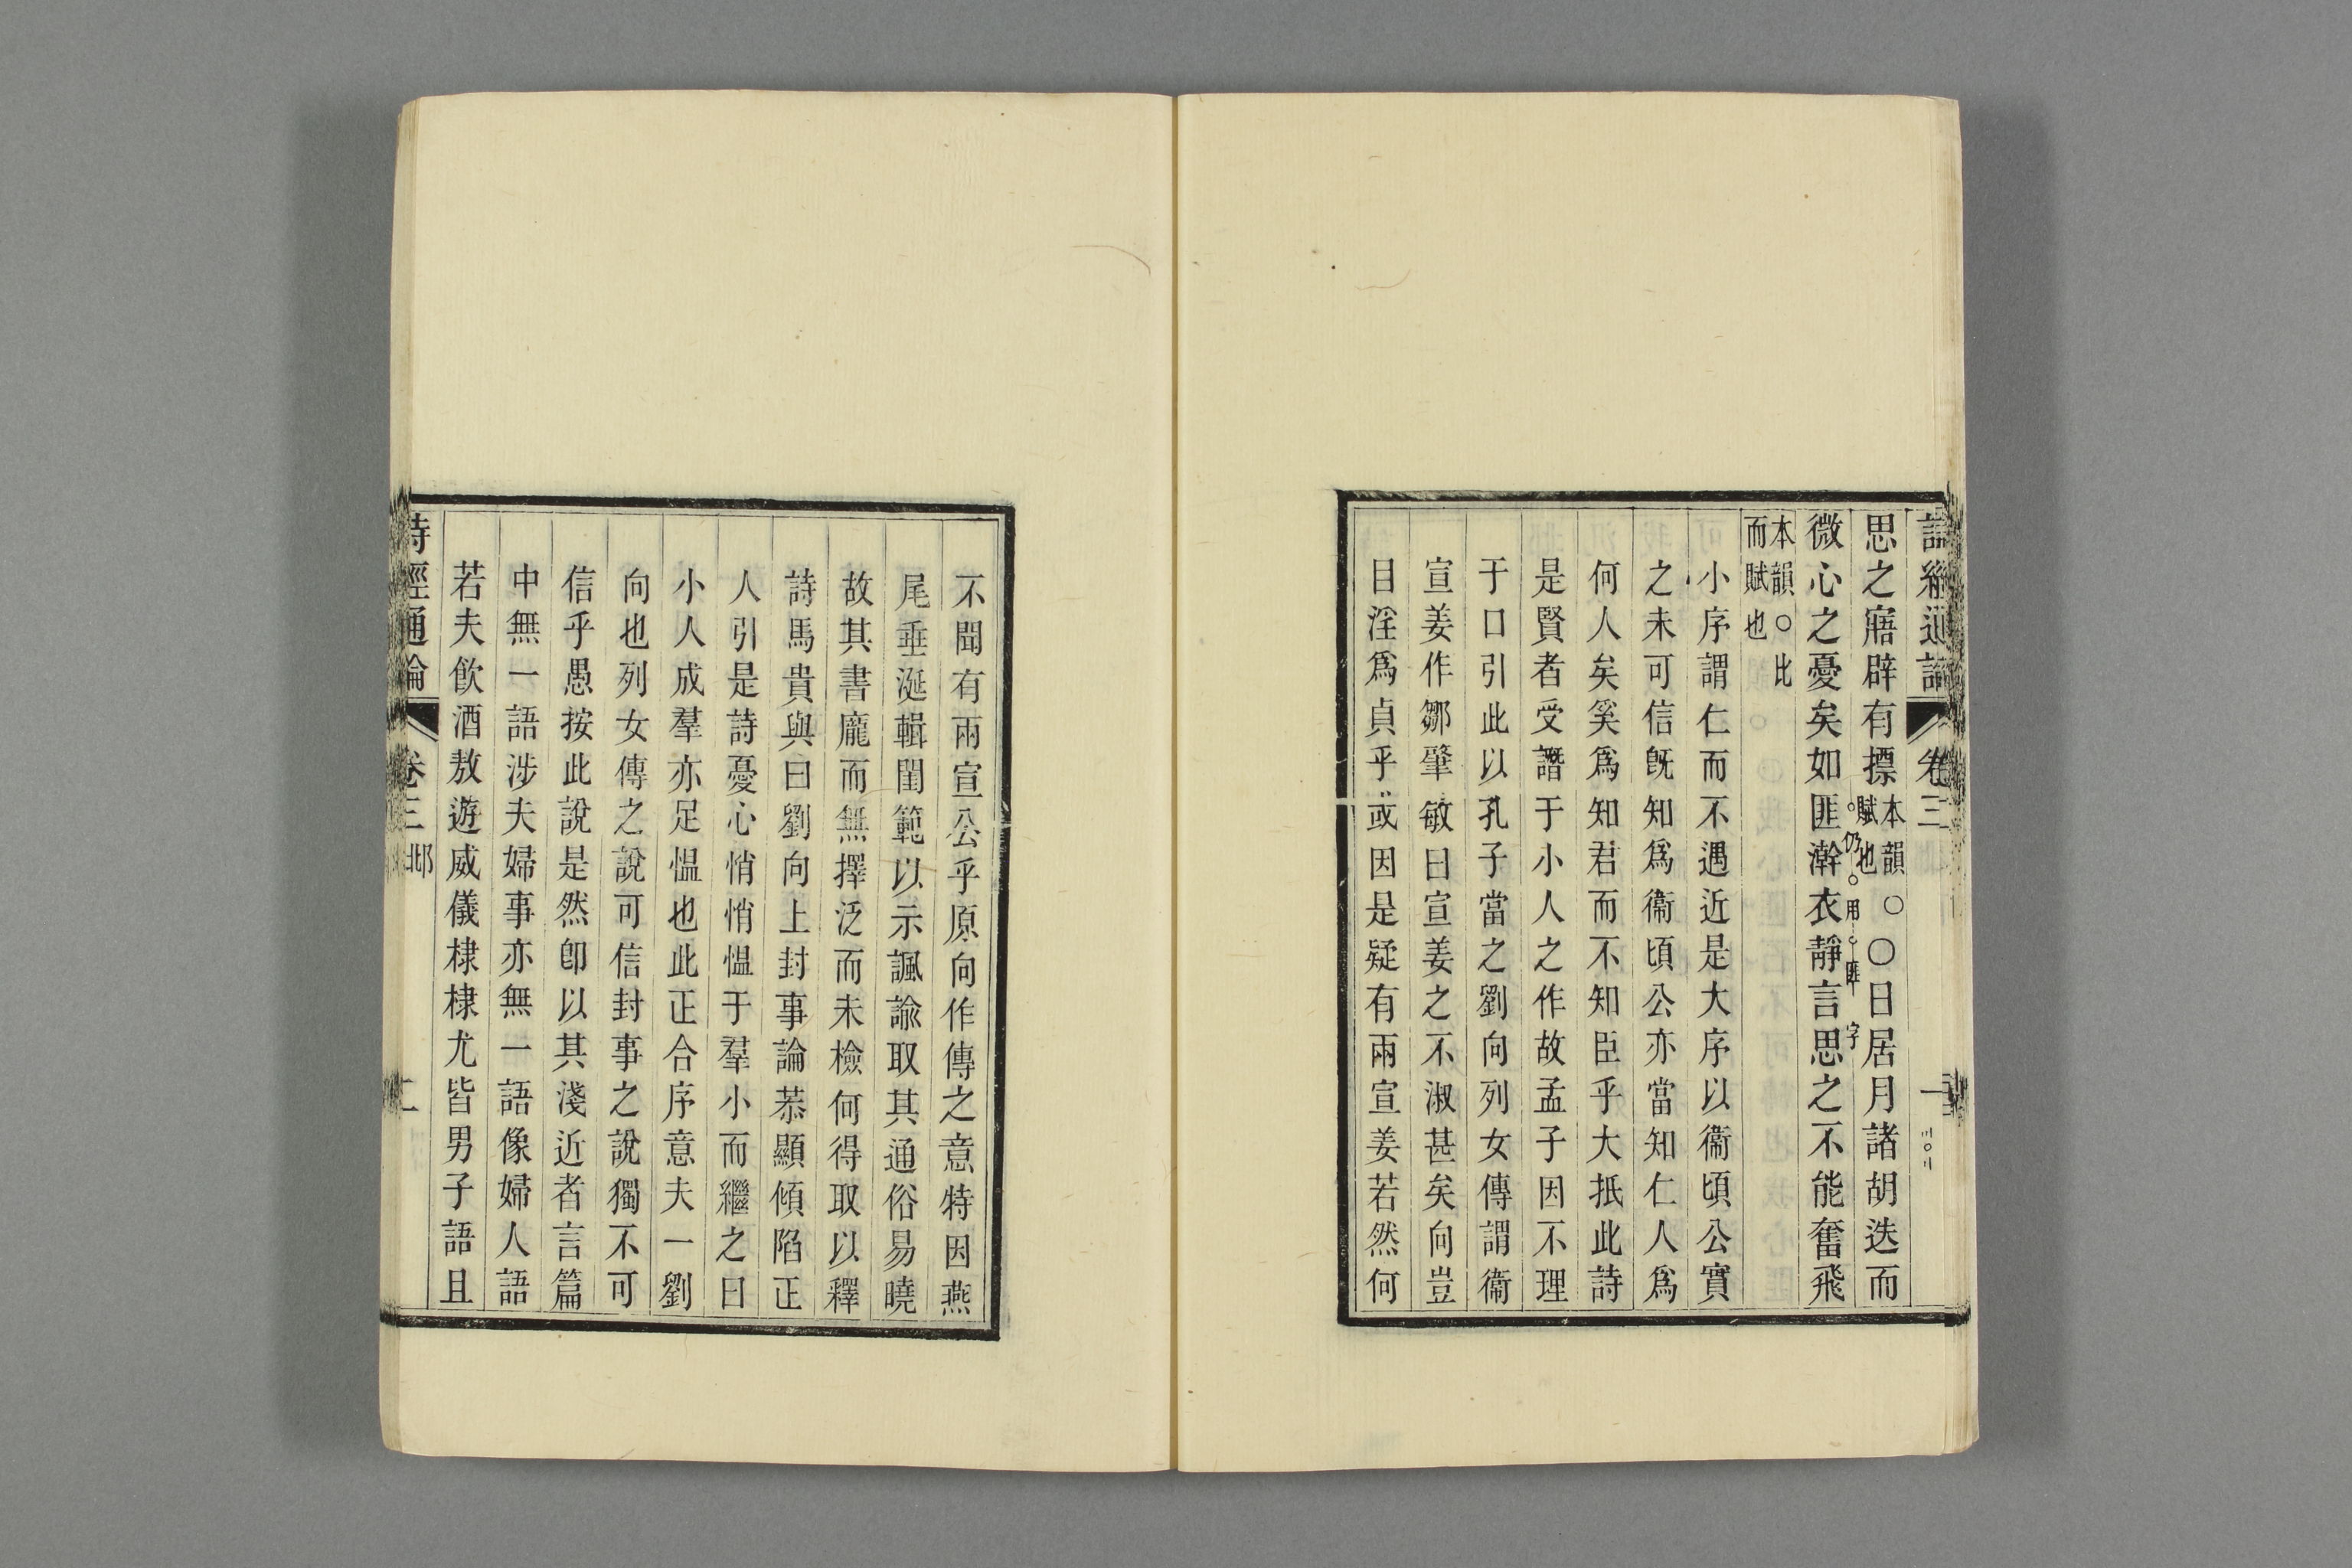 詩經通論 卷三
思之寤辟有摽本韻○賦也○日居月諸胡迭而
微心之憂矣如匪澣衣靜言思之不能奮飛
仍用匪字
本韻○比而賦也
小序謂仁而不遇近是大序以衞頃公實
之未可信旣知爲衞頃公亦當知仁人爲
何人矣奚爲知君而不知臣乎大抵此詩
是賢者受譖于小人之作故孟子因不理
于口引此以孔子當之劉向列女傳謂衞
宣姜作鄒肇敏曰宣姜之不淑甚矣向豈
目淫爲貞乎或因是疑有兩宣姜若然何
不聞有兩宣公乎原向作傳之意特因燕
尾垂涎輯閨範以示諷諭取其通俗易曉
故其書龐而無擇泛而未檢何得取以釋
詩馬貴與曰劉向上封事論恭顯傾陷正
人引是詩憂心悄悄慍于羣小而繼之曰
小人成羣亦足慍也此正合序意夫一劉
向也列女傳之說可信封事之說獨不可
信乎愚按此說是然卽以其淺近者言篇
中無一語涉夫婦事亦無一語像婦人語
若夫飮酒敖遊威儀棣棣尤皆男子語且
詩經通論 卷三 邶 二